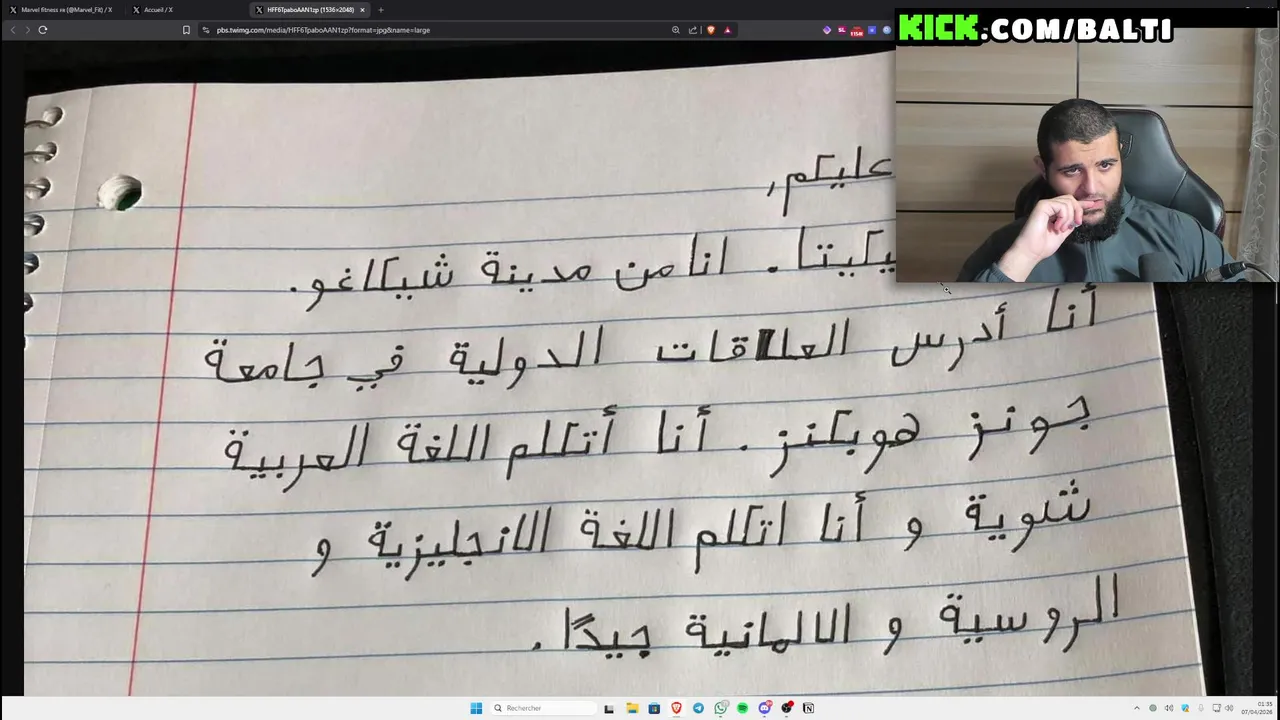 Marvel fitness ex (@Marvel_Fit) / X
Accueil / X
HFF6TpaboAAN1zp (1536×2048)
pbs.twimg.com/media/HFF6TpaboAAN1zp?format=jpg&name=large
KICK.COM/BALTI
عليكم,
انا من مدينة شيكاغو.
أنا أدرس العلاقات الدولية في جامعة
جونز هوبكنز. أنا أتكلم اللغة العربية
شوية و أنا اتكلم اللغة الانجليزية و
الروسية و الالمانية جيدًا.
Rechercher
01:35
07/04/2026